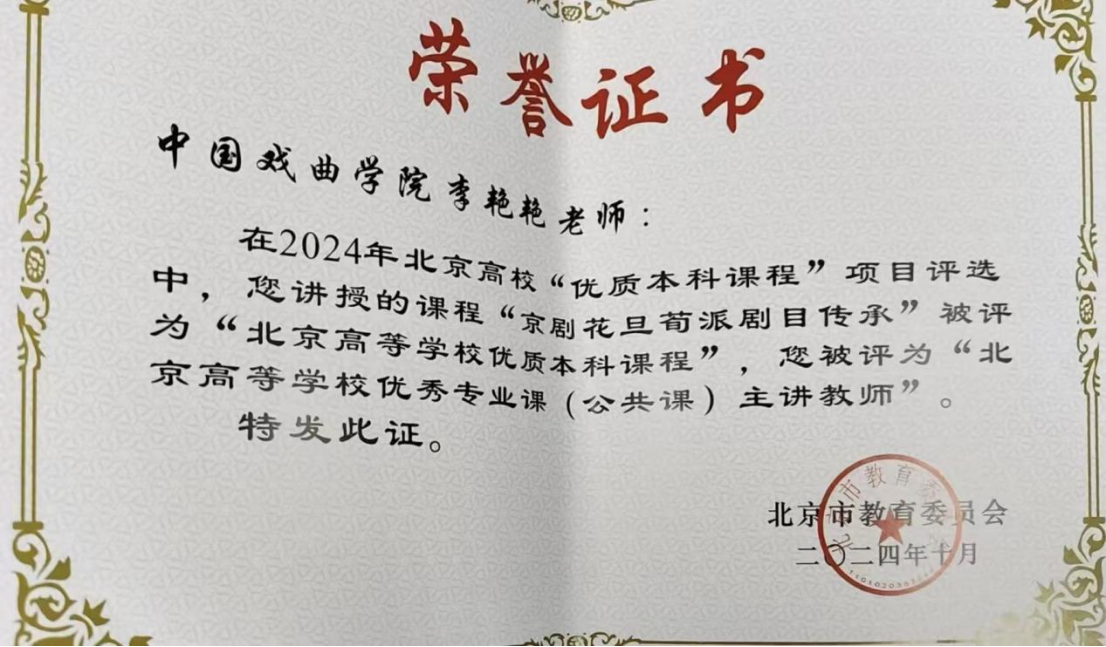 荣誉证书
中国戏曲学院李艳艳老师：
在2024年北京高校“优质本科课程”项目评选
中，您讲授的课程“京剧花旦荀派剧目传承”被评
为“北京高等学校优质本科课程”，您被评为“北
京高等学校优秀专业课（公共课）主讲教师”。
特发此证。
北京市教育委员会
二〇二四年十月
北京市教育委员会